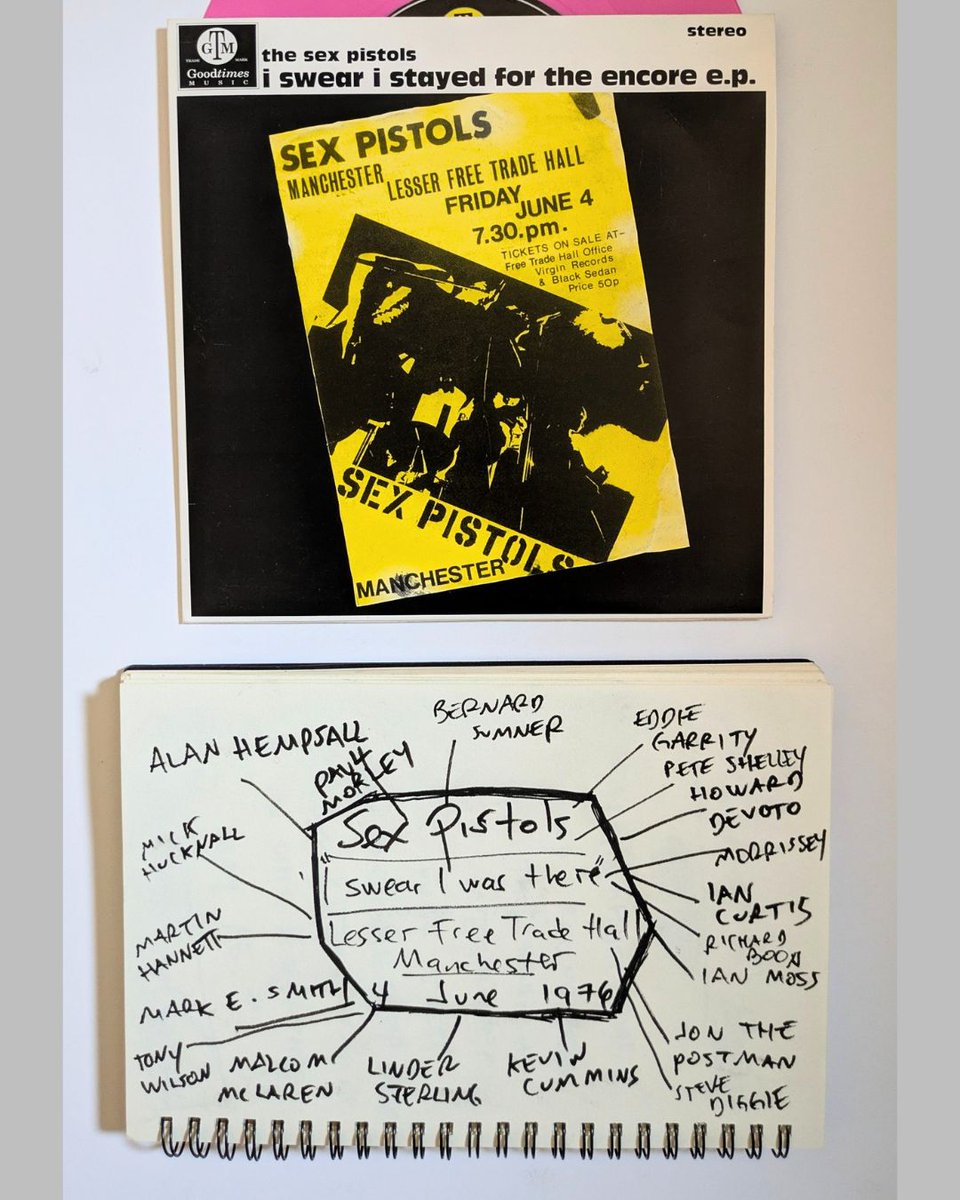 TRADE MARK
GTM
Goodtimes
MUSIC
stereo
the sex pistols
i swear i stayed for the encore e.p.
SEX PISTOLS
MANCHESTER LESSER FREE TRADE HALL
FRIDAY JUNE 4
7.30.pm.
TICKETS ON SALE AT-
Free Trade Hall Office
Virgin Records
& Black Sedan
Price 50p
SEX PISTOLS
MANCHESTER
BERNARD
SUMNER
EDDIE
GARRITY
ALAN HEMPSALL
PAUL
MORLEY
PETE SHELLEY
HOWARD
DEVOTO
MICK
HUCKNALL
MORRISSEY
Sex Pistols
"I swear I was there"
Lesser Free Trade Hall
Manchester
4 June 1976
IAN
CURTIS
MARTIN
HANNETT
RICHARD
BOON
IAN MOSS
MARK E. SMITH
TONY
WILSON
MALCOM
McLAREN
LINDER
STERLING
KEVIN
CUMMINS
JON THE
POSTMAN
STEVE
DIGGLE